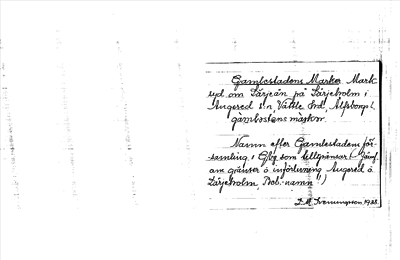 Gamlestadens Marker Mark
syd om Lärjeån på Lärjeholm i
Angered sn, Vättle hd, Älfsborgs l.
gamlestens maskor.
Namn efter Gamlestadens för-
samling i Gbg som tillgränsar (Jämf.
om gränser o införlivning Angered o
Lärjeholm, Bob. namn 1)
1928